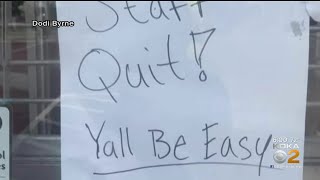 Dodi Byrne
Staff
Quit!
Yall Be Easy
KDKA
2